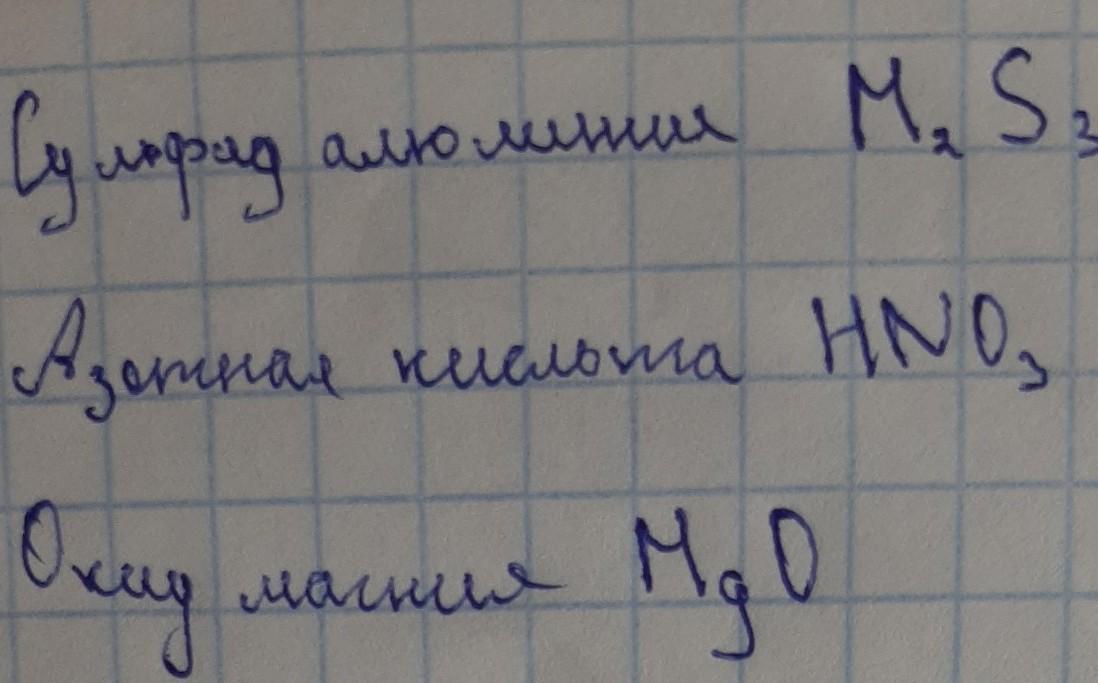 Сульфид алюминия M₂S₃
Азотная кислота HNO₃
Оксид магния MgO